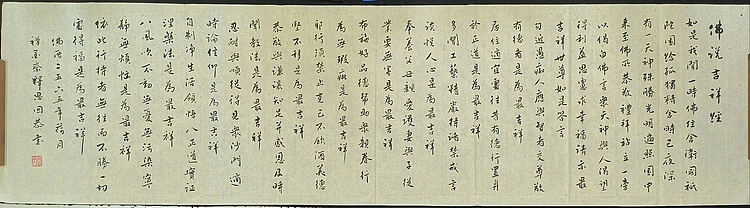 佛說吉祥經
如是我聞一時佛住舍衛國祇
陀園給孤獨精舍時已夜深
有一天神殊勝光明遍照園中
來至佛所恭敬禮拜站立一旁
以偈白佛言眾天神與人渴望
得利益思慮求幸福請示最
吉祥世尊如是答言
勿近愚痴人應與智者交尊敬
有德者是為最吉祥
居住適宜處往昔有德行置身
於正道是為最吉祥
多聞工藝精嚴持諸禁戒言
談悅人心是為最吉祥
奉養父母親愛護妻與子從
業要無害是為最吉祥
布施好品德幫助眾親眷行
為無瑕疵是為最吉祥
邪行須禁止克己不飲酒美德
堅不移是為最吉祥
恭敬與謙讓知足並感恩及時
聞教法是為最吉祥
忍耐與順從得見眾沙門適
時論信仰是為最吉祥
自制淨生活領悟八正道實証
涅槃法是為最吉祥
八風吹不動無憂無污染寧
靜無煩惱是為最吉祥
依此行持者無往而不勝一切
處得福是為最吉祥
佛曆二五六五年荷月
恭書